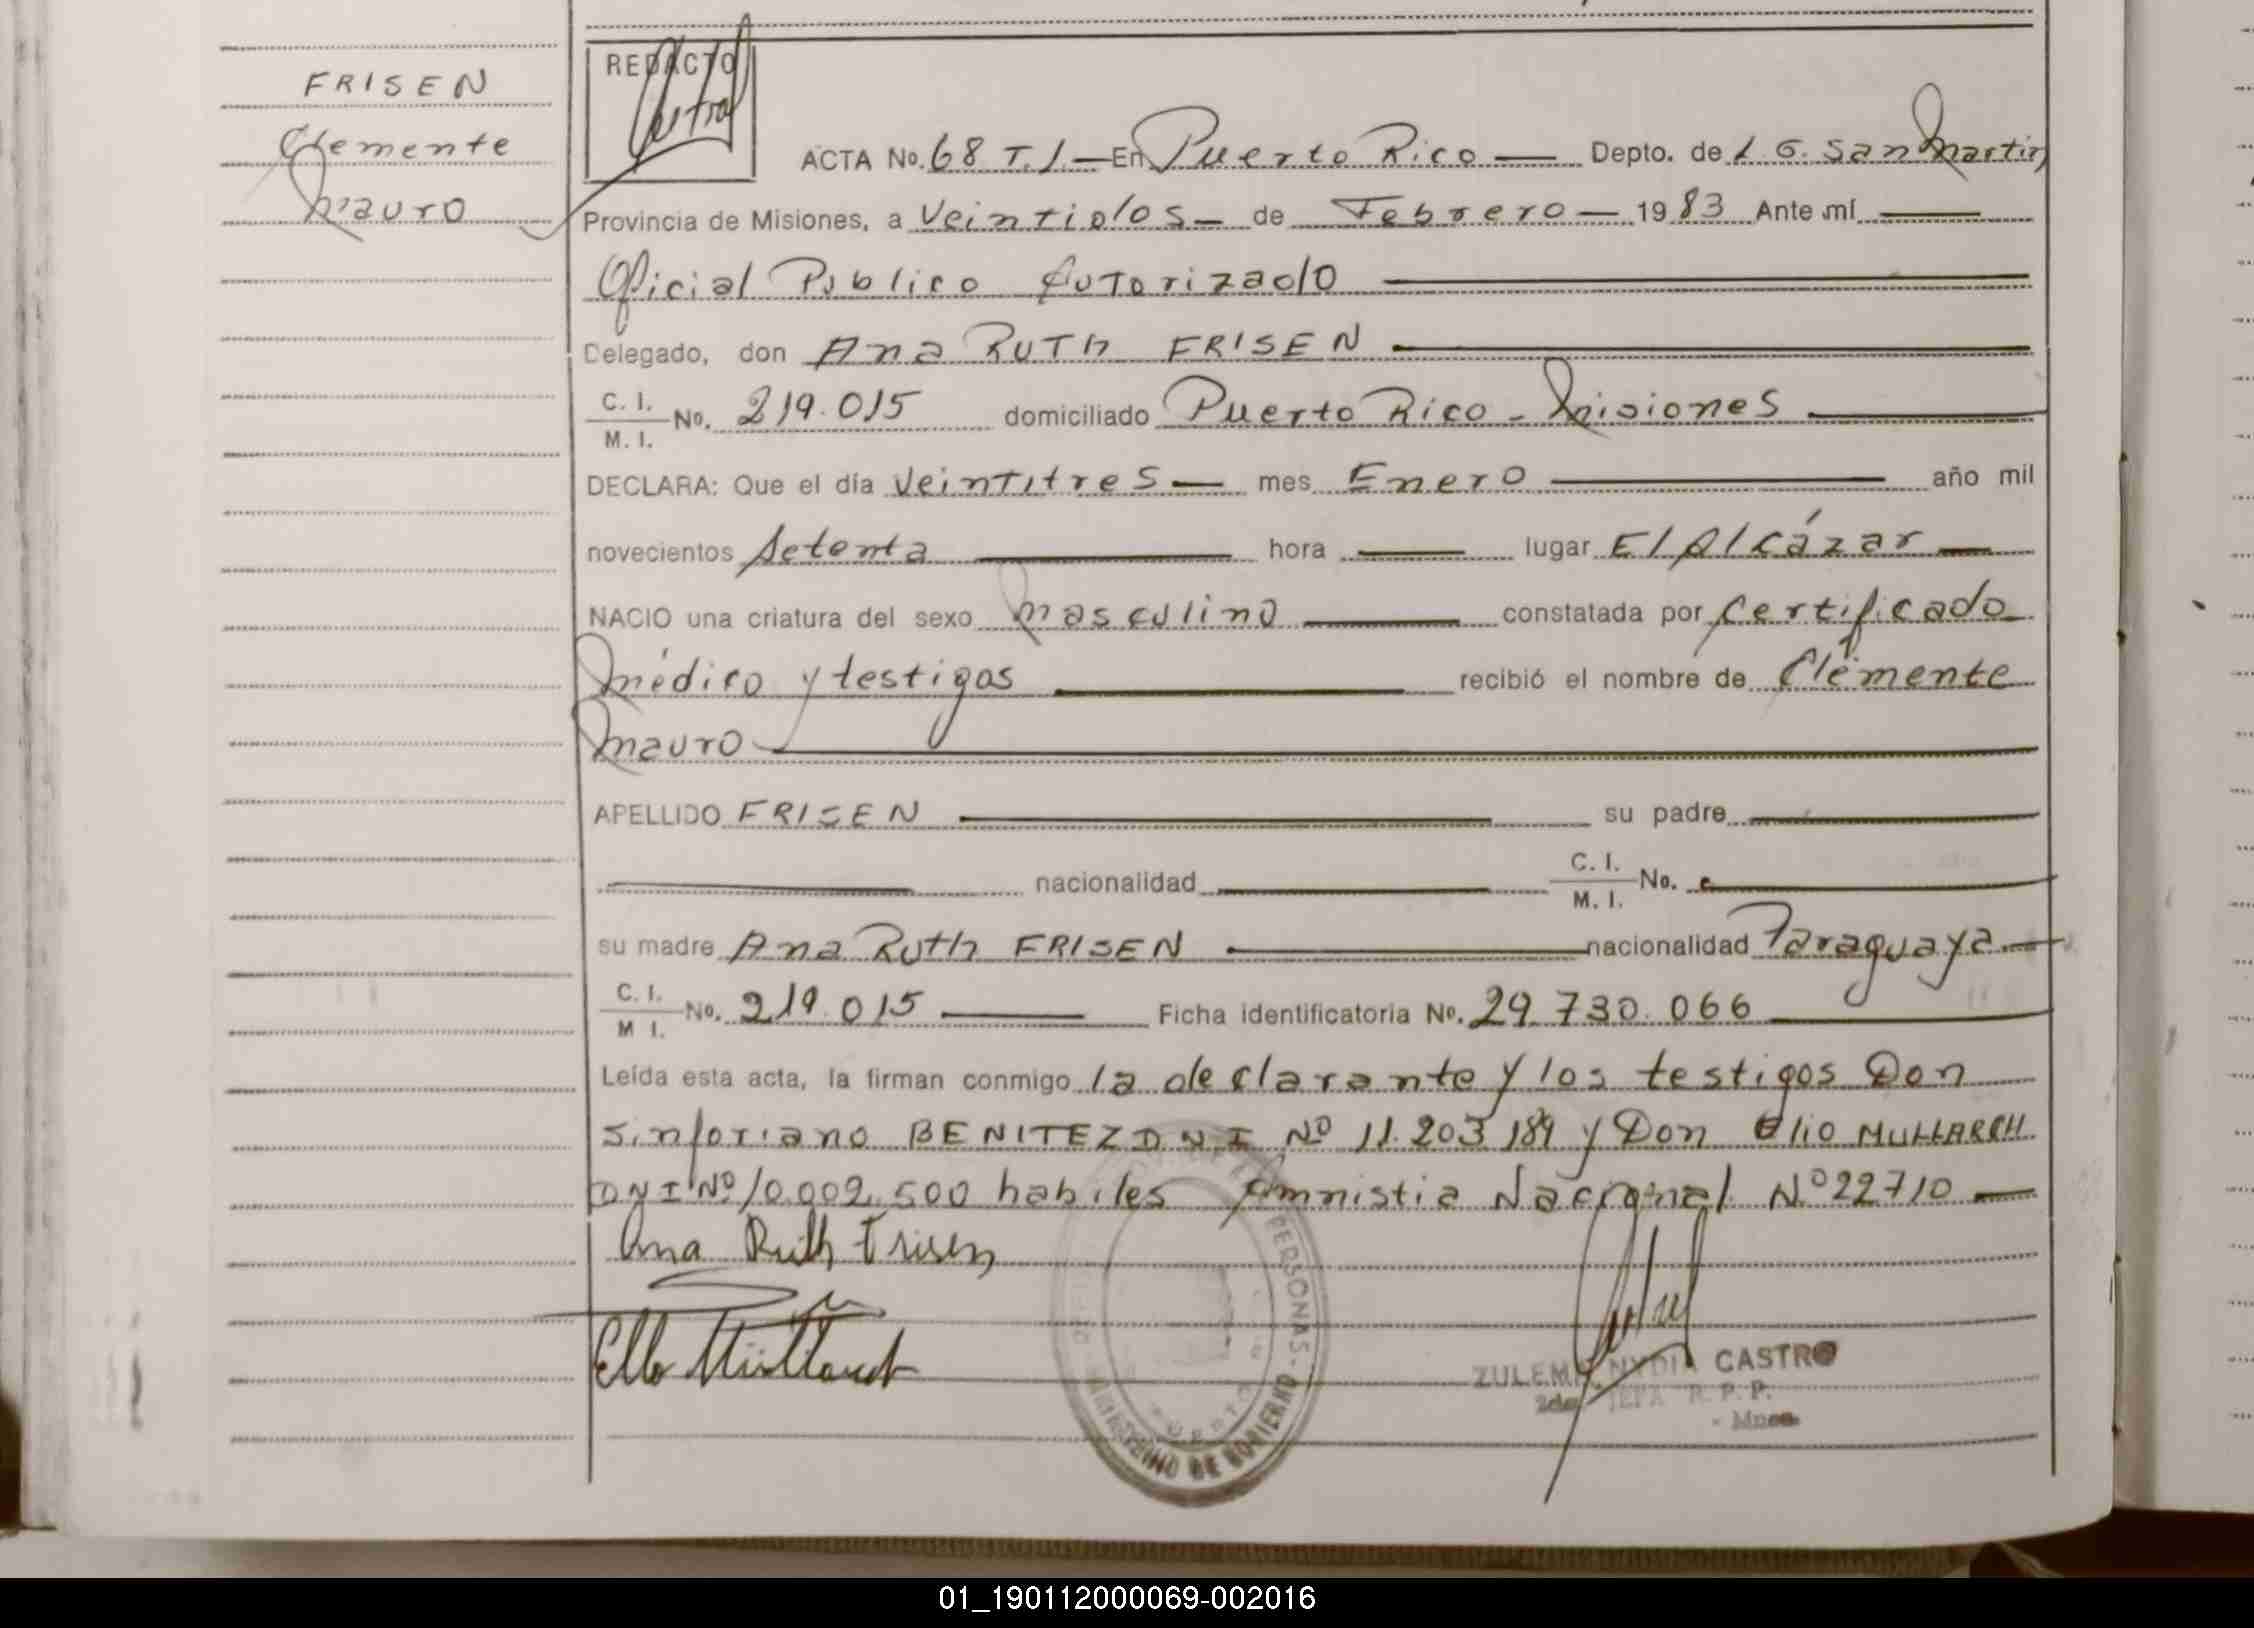 FRISEN
Clemente
Mauro
REDACTO
ACTA No. 68 T. I — En Puerto Rico — Depto. de L. G. San Martin
Provincia de Misiones, a Veintidos — de Febrero — 1983 Ante mí —
Oficial Publico Autorizado —
Delegado, don Ana RUTh FRISEN —
C. I.
M. I. No. 219.015 domiciliado Puerto Rico - Misiones —
DECLARA: Que el día Veintitres — mes Enero — año mil
novecientos Setenta — hora — lugar El Alcázar —
NACIO una criatura del sexo masculino — constatada por Certificado
Médico y testigos — recibió el nombre de Clemente
Mauro —
APELLIDO FRISEN — su padre —
— nacionalidad — C. I.
M. I. No. —
su madre Ana Ruth FRISEN — nacionalidad Paraguaya —
C. I.
M I. No. 219.015 — Ficha identificatoria No. 29.730.066 —
Leída esta acta, la firman conmigo la declarante y los testigos Don
Sinforiano BENITEZ D N I Nº 11.203 189 y Don Elio MULLARCH
DNI Nº 10.002.500 habiles Amnistia Nacional Nº 22710 —
Ana Ruth Frisen
PERSONAS - MINISTERIO DE GOBIERNO
ZULEMA NYDIA CASTRO
2da. JEFA R. P. P.
- Mnes.
01_190112000069-002016